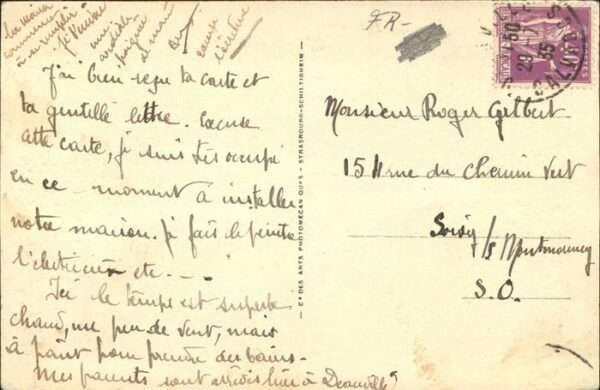 La maison
commence
à se remplir
j'
une
poignée
de main
J'ai bien reçu ta carte et
ta gentille lettre. Excuse
cette carte, je suis très occupé
en ce moment à installer
notre maison. je fais le peintre
l'électricien etc - - -
Ici le temps est superbe
chaud, un peu de vent, mais
à point pour prendre des bains.
Mes parents sont arrivés hier à Deauville
— CIE DES ARTS PHOTOMÉCANIQUES - STRASBOURG-SCHILTIGHEIM —
FR-
29 - 7
35
CALVADOS
Monsieur Roger Gilbert
15 rue du Chemin Vert
Soisy
s/s Montmorency
S.O.